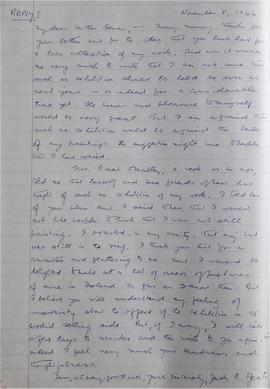 REPLY: November 8, 1944
My dear Father Senan, — Many many thanks for
your letter and for the idea that you have had for
a loan collection of my work. And now it worries
me very much to write that I am not sure that
such an exhibition should be held as soon as
next year — or indeed for a considerable
time yet. The honour and pleasure to myself
would be very great. But I am afraid that
such an exhibition would be against the sales
of my paintings. The suggestion might come to people
that I had retired.
Mrs. Ernie O'Malley, a week or so ago,
told me that herself and some friends of hers had
thought of such an exhibition of my work. I told her
of your plan and I said that I would
not like people to think that I was not still
painting. I wanted, in my vanity, that my hat
was still in the ring. I think your list for a
committee most flattering to me. And I would be
delighted to make out a list of owners of pictures
of mine in Ireland as far as I know them. But
I believe you will understand my feeling of
uncertainty about the effect of the exhibition on the
sordid selling side. But, if I may, I will take
a few days to consider and then write to you again.
Indeed I feel very much your kindness and
thoughtfulness.
Yours sincerely, Jack B. Yeats